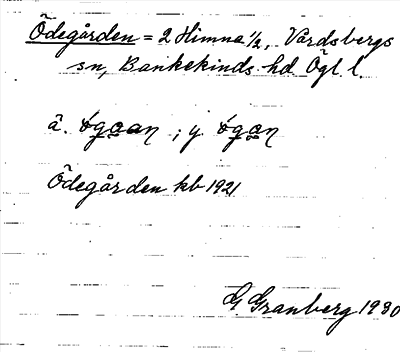 Ödegården = 2 Himna ½, Vårdsbergs
sn, Bankekinds hd Ögl. l.
ä. ógaan ; y. ógan
Ödegården kb 1921
G Granberg 1930